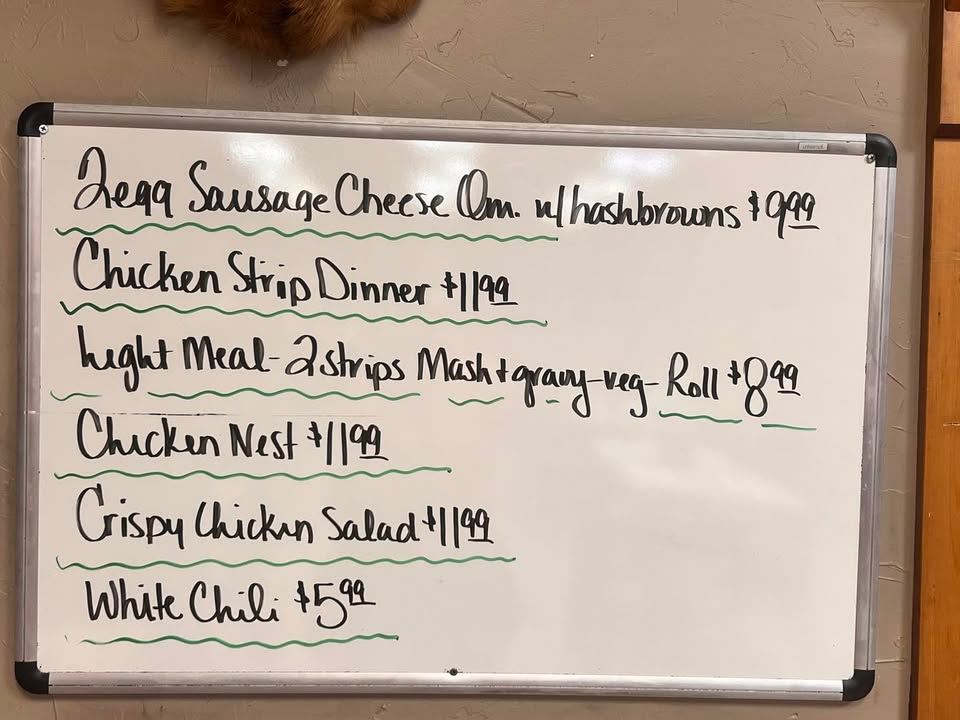 2 egg Sausage Cheese Om. w/hashbrowns $9.99
Chicken Strip Dinner $11.99
Light Meal - 2 strips Mash + gravy - veg - Roll $8.99
Chicken Nest $11.99
Crispy Chicken Salad $11.99
White Chili $5.99